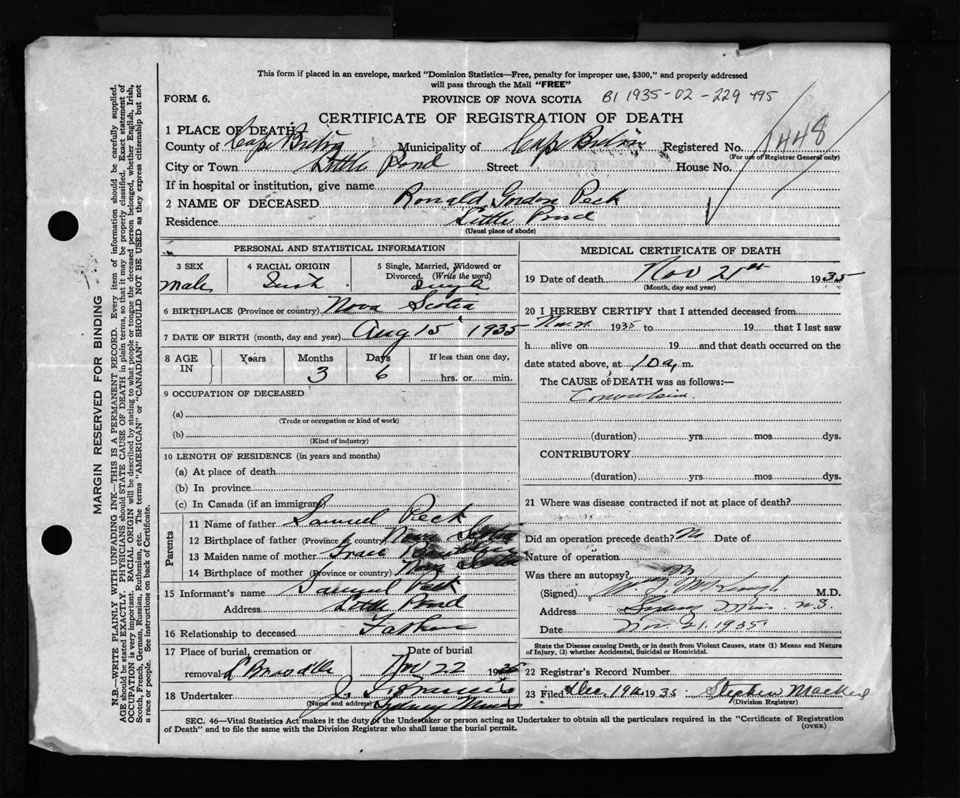 This form if placed in an envelope, marked "Dominion Statistics—Free, penalty for improper use, $300," and properly addressed
will pass through the Mail "FREE"
FORM 6. PROVINCE OF NOVA SCOTIA B1 1935-02-229495
CERTIFICATE OF REGISTRATION OF DEATH
1 PLACE OF DEATH
County of Cape Breton Municipality of Cape Breton Registered No. 1448
(For use of Registrar General only)
City or Town Little Pond Street House No.
If in hospital or institution, give name
2 NAME OF DECEASED Ronald Gordon Peck
Residence Little Pond
(Usual place of abode)
PERSONAL AND STATISTICAL INFORMATION
3 SEX 4 RACIAL ORIGIN 5 Single, Married, Widowed or
Divorced, (Write the word)
Male Single
6 BIRTHPLACE (Province or country) Nova Scotia
7 DATE OF BIRTH (month, day and year) Aug 15 1935
8 AGE IN Years Months Days If less than one day,
3 6 hrs. or min.
9 OCCUPATION OF DECEASED
(a)
(Trade or occupation or kind of work)
(b)
(Kind of industry)
10 LENGTH OF RESIDENCE (in years and months)
(a) At place of death
(b) In province
(c) In Canada (if an immigrant)
Parents
11 Name of father Samuel Peck
12 Birthplace of father (Province or country) Nova Scotia
13 Maiden name of mother Grace
14 Birthplace of mother (Province or country) Nova Scotia
15 Informant's name Samuel Peck
Address Little Pond
16 Relationship to deceased Father
17 Place of burial, cremation or Date of burial
removal Nov 22 1935
18 Undertaker J. Francis
(Name and address) Sydney Mines
MEDICAL CERTIFICATE OF DEATH
19 Date of death Nov 21st 1935
(Month, day and year)
20 I HEREBY CERTIFY that I attended deceased from
1935 to 19 that I last saw
h alive on 19 and that death occurred on
the date stated above, at 10 a m.
The CAUSE of DEATH was as follows:—
Convulsion
(duration) yrs mos dys.
CONTRIBUTORY
(duration) yrs. mos. dys.
21 Where was disease contracted if not at place of death?
Did an operation precede death? No Date of
Nature of operation
Was there an autopsy? No
(Signed) M.D.
Address Sydney Mines N.S.
Date Nov. 21, 1935
State the Disease causing Death, or in death from Violent Causes, state (1) Means and Nature
of Injury, (2) whether Accidental, Suicidal or Homicidal.
22 Registrar's Record Number
23 Filed Dec. 19th 1935 Stephen
(Division Registrar)
SEC. 46—Vital Statistics Act makes it the duty of the Undertaker or person acting as Undertaker to obtain all the particulars required in the "Certificate of Registration
of Death" and to file the same with the Division Registrar who shall issue the burial permit.
(OVER)
MARGIN RESERVED FOR BINDING
N.B.—WRITE PLAINLY WITH UNFADING INK—THIS IS A PERMANENT RECORD. Every item of information should be carefully supplied.
AGE should be stated EXACTLY. PHYSICIANS should STATE CAUSE OF DEATH in plain terms, so that it may be properly classified. Exact statement of
OCCUPATION is very important. RACIAL ORIGIN will be described by stating to what people or tongue the deceased person belonged, whether English, Irish,
Scotch, French, German, Russian, Ruthenian, etc. The terms "AMERICAN" or "CANADIAN" SHOULD NOT BE USED as they express citizenship but not
a race or people. See instructions on back of Certificate.